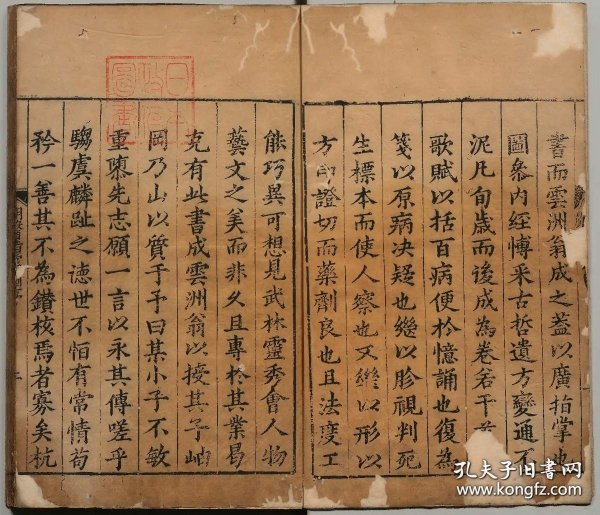 書而雲洲翁成之蓋以廣指掌也
圖叅内經愽采古哲遺方變通不
泥凡旬歲而後成為卷若干首
歌賦以括百病便扵憶誦也復為
箋以原病决疑也繼以胗視判死
生標本而使人察也又繼以形以
方即證切而藥劑良也且法度工
能巧異可想見武林靈秀會人物
藝文之美而非久且專扵其業曷
克有此書成雲洲翁以授其子岫
岡乃山以質于予曰某小子不敏
重隳先志願一言以永其傳嗟乎
騶虞麟趾之徳世不恒有常情苟
矜一善其不為鑚核焉者寡矣杭
孔夫子旧书网
www.kongfz.com